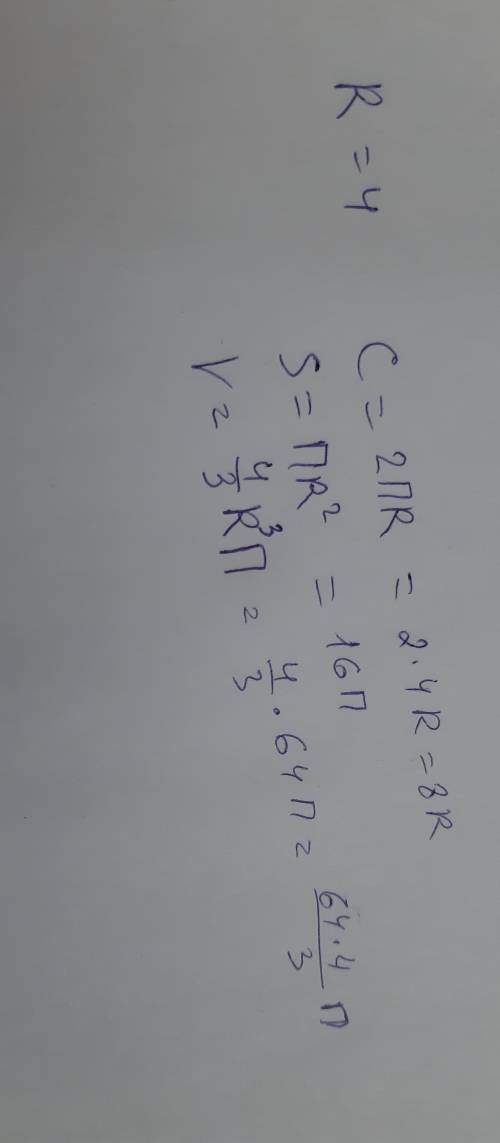 R = 4
C = 2ПR = 2·4R = 8R
S = ПR² = 16П
V = 4/3 R³П = 4/3 · 64П = 64·4/3 П